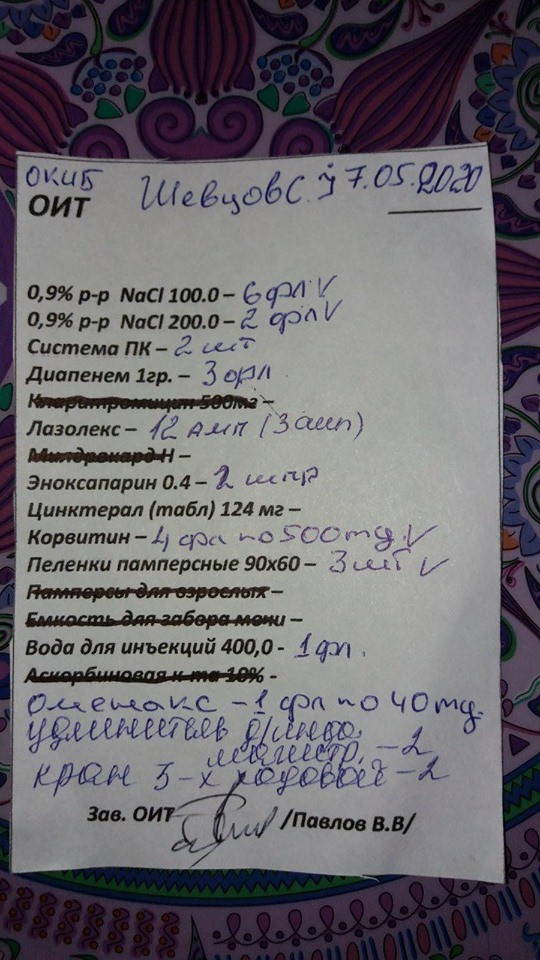 ОКИБ Шевцов С. 7.05.2020
ОИТ
0,9% р-р NaCl 100.0 – 6 фл V
0,9% р-р NaCl 200.0 – 2 фл V
Система ПК – 2 шт
Диапенем 1гр. – 3 фл
Кларитромицин 500мг –
Лазолекс – 12 амп (3 амп)
Милдрокард-Н –
Эноксапарин 0.4 – 2 шпр
Цинктерал (табл) 124 мг –
Корвитин – 4 фл по 500mg. V
Пеленки памперсные 90х60 – 3 шт V
Памперсы для взрослых –
Емкость для забора мочи –
Вода для инъекций 400,0 - 1 фл.
Аскорбиновая к-та 10% -
Ометакс – 1 фл по 40 mg.
удлинитель д/инфо
магистр. – 2
кран 3-х ходовой – 2
Зав. ОИТ /Павлов В.В/